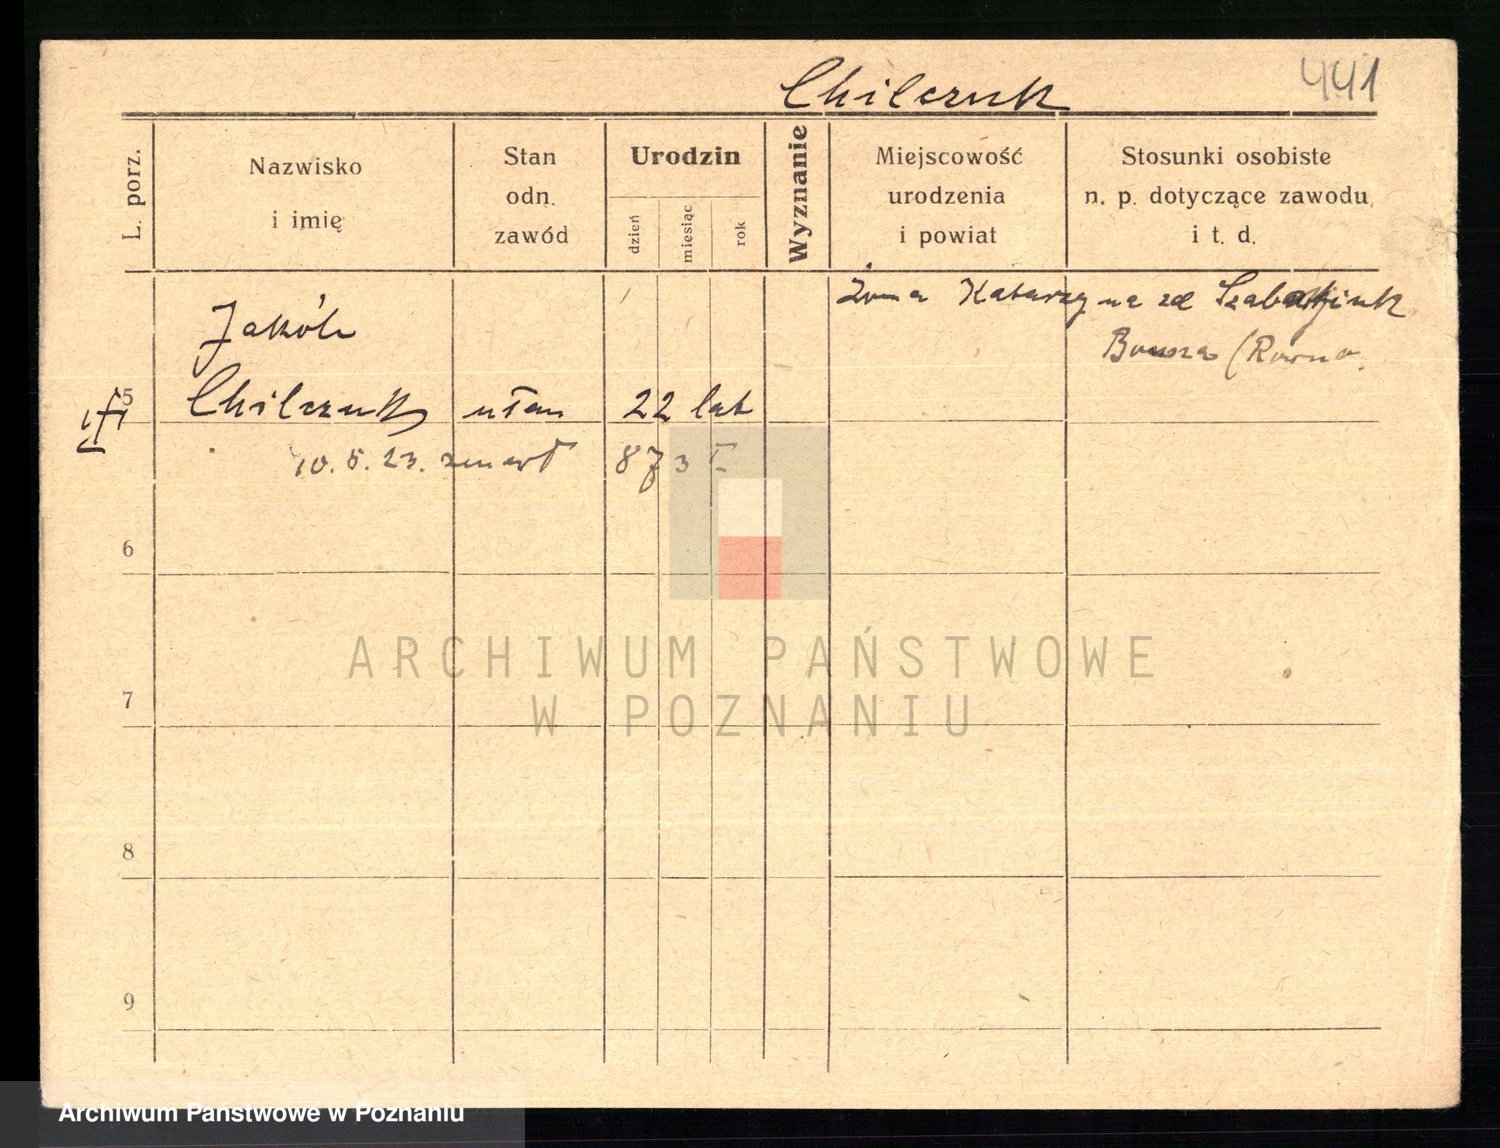 441
Chilczuk
L. porz.
Nazwisko
i imię
Stan
odn.
zawód
Urodzin
dzień
miesiąc
rok
Wyznanie
Miejscowość
urodzenia
i powiat
Stosunki osobiste
n. p. dotyczące zawodu
i t. d.
Żona Katarzyna zd
(Równo.
Jakób
5 Chilczuk ułan 22 lat
10.5.23. zmarł 873 I
6
ARCHIWUM PAŃSTWOWE
W POZNANIU
7
8
9
Archiwum Państwowe w Poznaniu